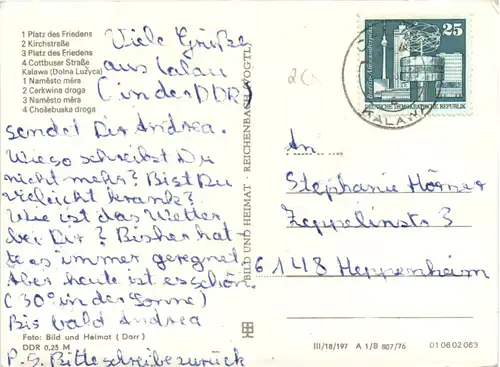 1 Platz des Friedens
2 Kirchstraße
3 Platz des Friedens
4 Cottbuser Straße
Kalawa (Dolna Łużyca)
1 Naměsto měra
2 Cerkwina droga
3 Naměsto měra
4 Chośebuska droga
Viele Grüße
aus Calau
(in der DDR)
sendet Dir Andrea.
Wieso schreibst Du
nicht mehr? Bist Du
vieleicht krank?
Wie ist das Wetter
bei Dir? Bisher hat
te es immer geregnet.
Aber heute ist es schön.
(30° in der Sonne)
Bis bald Andrea
Foto: Bild und Heimat (Darr)
DDR 0,25 M
P.S. Bitte schreibe zurück
BILD UND HEIMAT · REICHENBACH (VOGTL)
25
Berlin-Alexanderplatz
DEUTSCHE DEMOKRATISCHE REPUBLIK
KALAWA
An
Stephanie Hörner
Zeppelinstr. 3
6148 Heppenheim
III/18/197 A 1/B 807/76 01 06 02 069